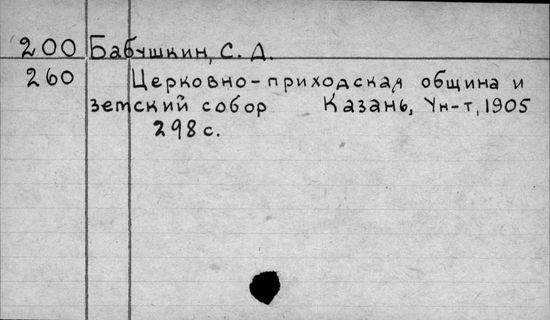 200 Бабушкин, С. Д.
260 Церковно-приходская община и
земский собор Казань, Ун-т, 1905
298 с.